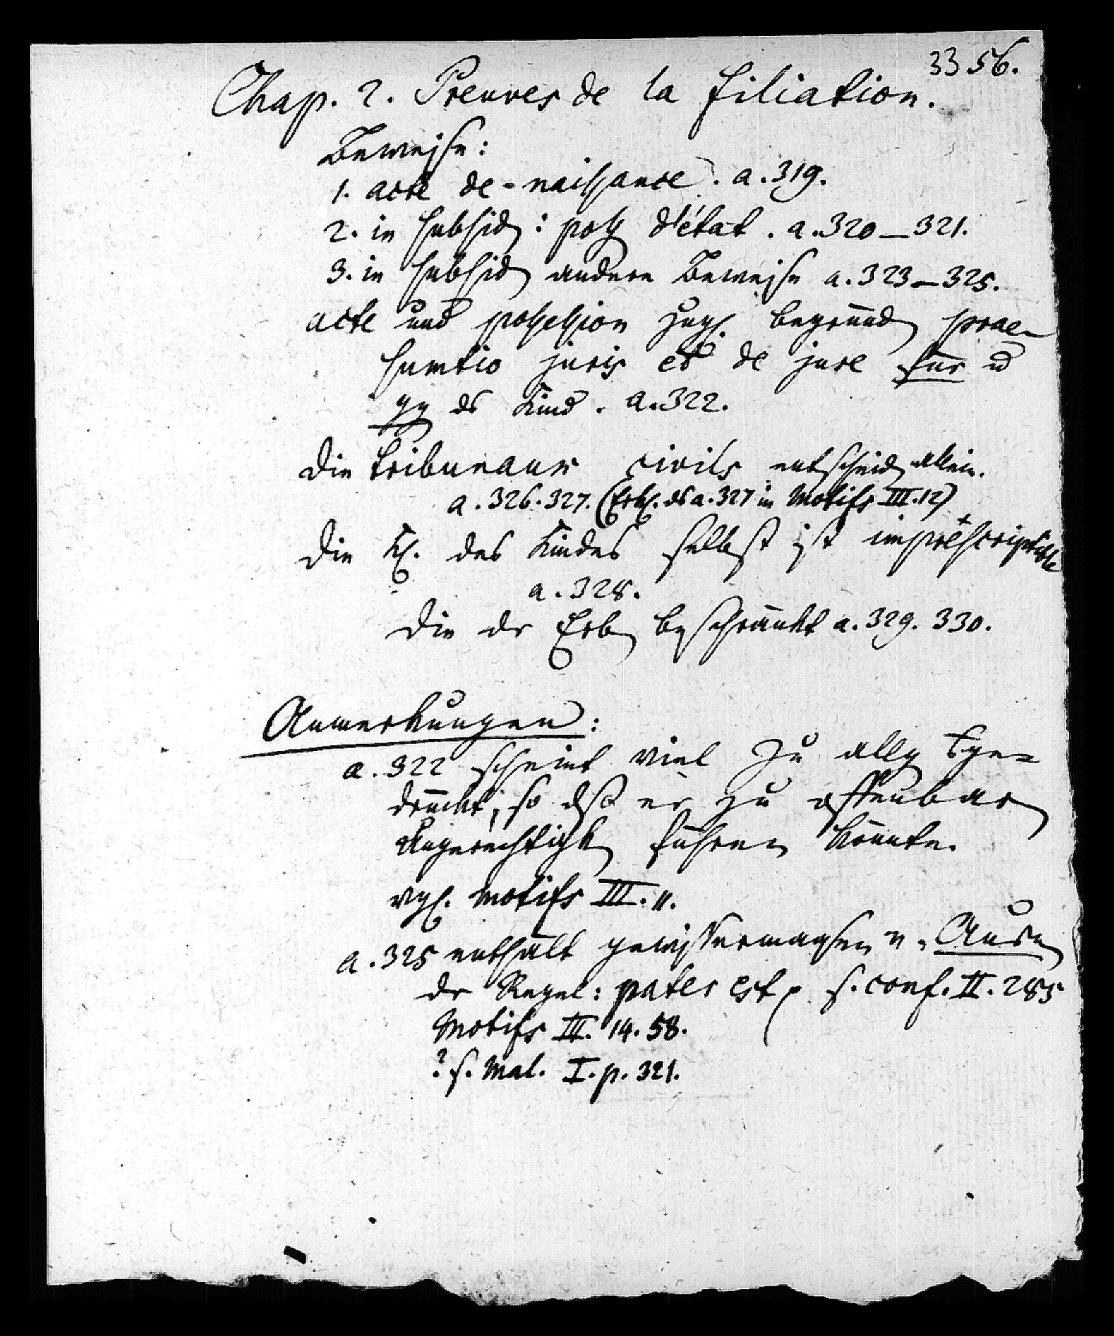 33 56.
Chap. 2. Preuves de la filiation.
Beweise:
1. acte de naissance. a. 319.
2. in subsid: poss d'état. a. 320–321.
3. in subsid andere Beweise a. 323–325.
acte und possession zus. begründ prae-
sumtio juris et de jure für u
gg ds Kind. a. 322.
Die tribunaux civils entscheid allein.
a. 326. 327. (Erkl. ds a. 327 in Motifs III. 12)
Die Kl. des Kindes selbst ist imprescriptible
a. 328.
Die dr Erb beschränkt a. 329. 330.
Anmerkungen:
a. 322 scheint viel zu allg ausge-
drückt, so dß er zu offenbar
Ungerechtigk führen könnte.
vgl. Motifs III. 11.
a. 325 enthält gewissermassen e. Ausn
dr Regel: pater est s. conf. II. 285
Motifs III. 14. 58.
? s. Mal. I. p. 321.